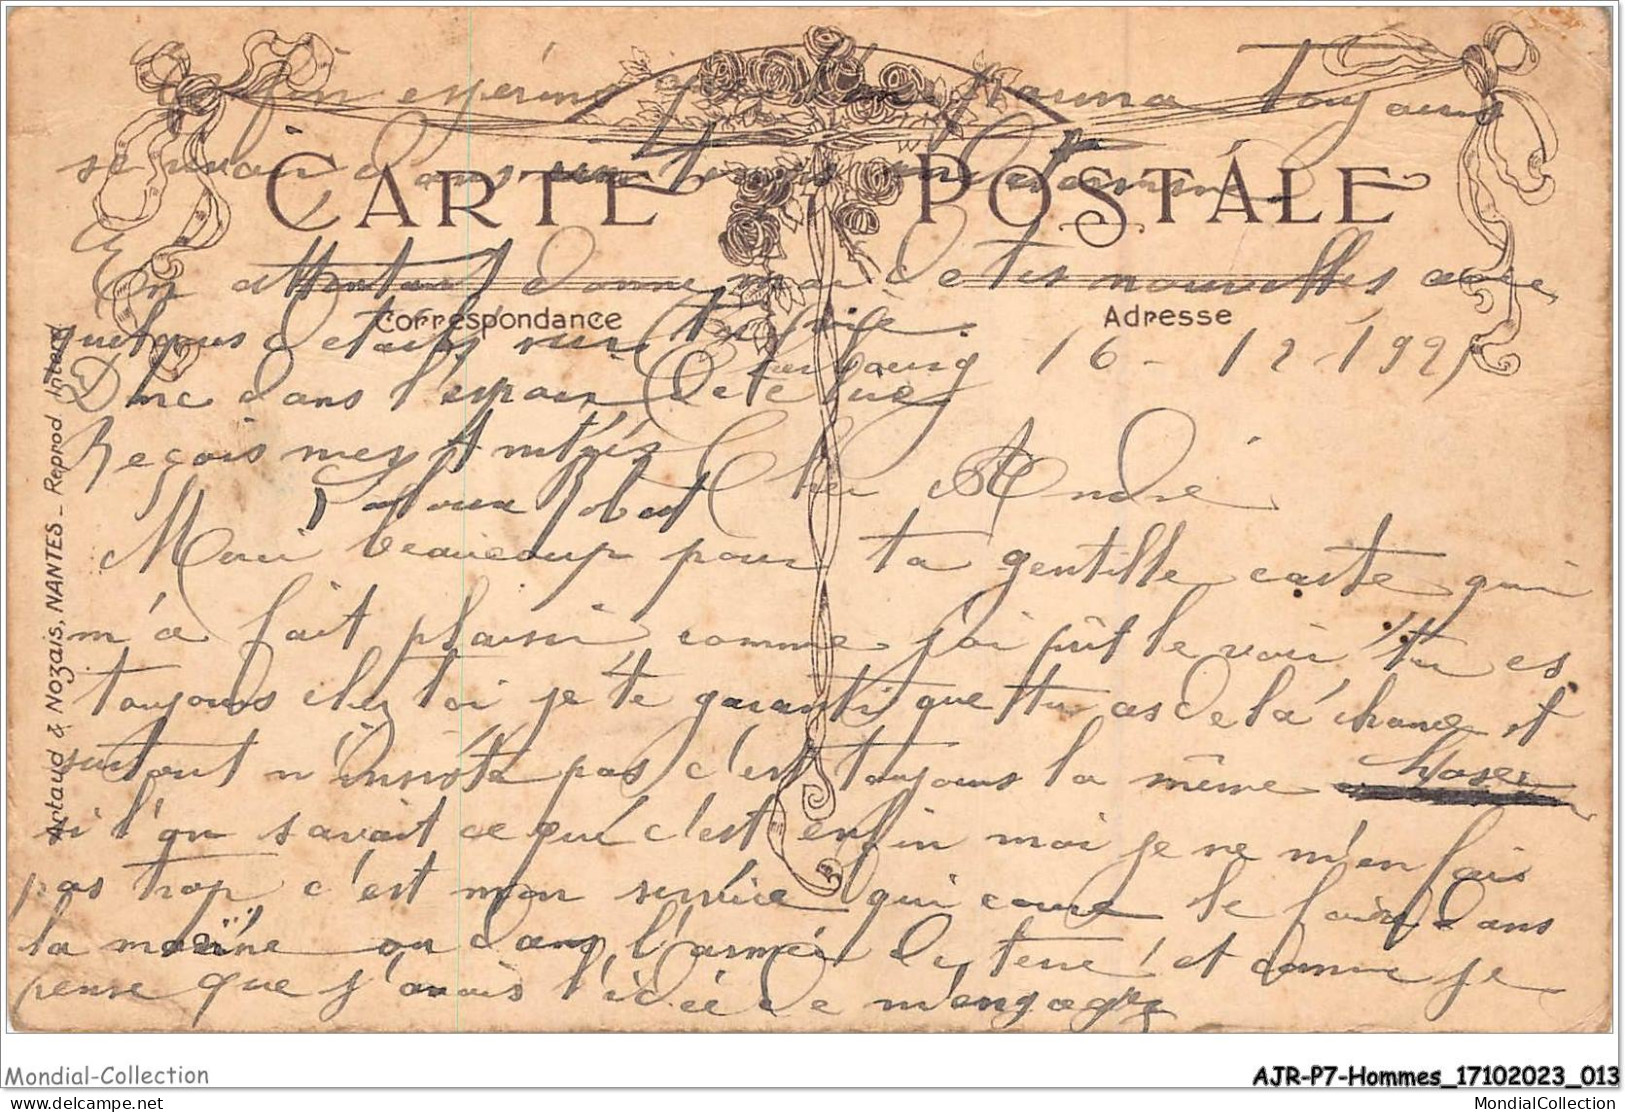 en espérant que l'on pourra toujours
se revoir dans un temps
CARTE POSTALE
En attendant donne moi de tes nouvelles avec
Correspondance
Adresse
quelques détails sur ta vie.
Cherbourg 16-12-1921
Donc dans l'espoir de te lire
Reçois mes Amitiés
Robert
Cher André
Merci beaucoup pour ta gentille carte qui
m'a fait plaisir comme j'ai pût le voir tu es
toujours chez toi je te garanti que tu as de la chance et
surtout n' pas c'est toujours la même chose
si l'on savait ce que c'est enfin moi je ne m'en fais
pas trop c'est mon service qui court le faire dans
la marine ou dans l'armée de terre et comme je
pense que j'avais l'idée de m'engager
Artaud & Nozais, NANTES - Reprod Interd
Mondial-Collection
AJR-P7-Hommes_17102023_013
mondial-collection.com
MondialCollection